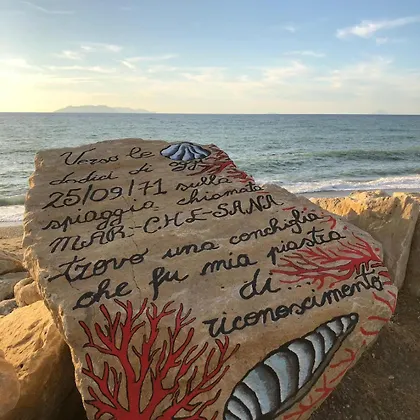 Verso le
dodici di oggi
25/09/71 sulla
spiaggia chiamata
MAR-CHE-SANA
trovo una conchiglia
che fu mia piastra
di...
riconoscimento